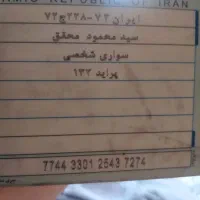 REPUBLIC OF IRAN
ایران ۷۲-۲۳۸ج۷۲
سید محمود محقق
سواری شخصی
پراید ۱۳۲
7744 3301 2643 7274